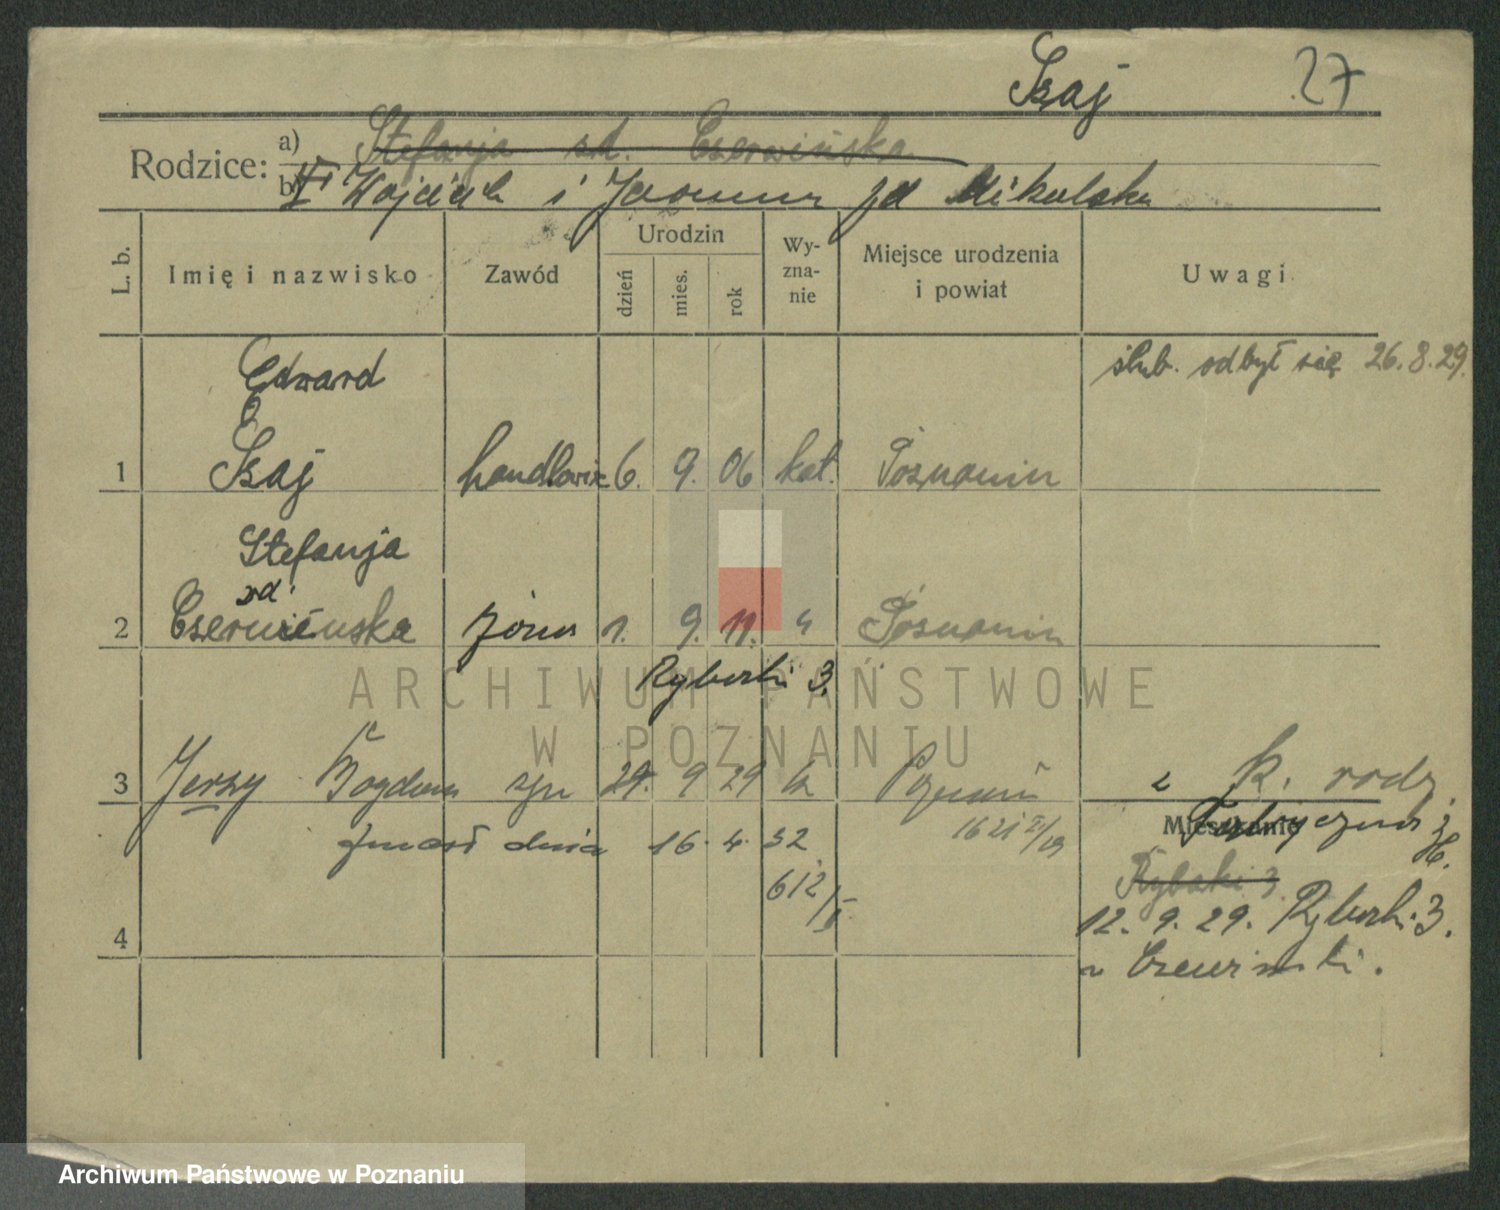 Isaj 27
Rodzice: a) Stefanja zd. Czerwińska
b) Wojciech i Joanna zd Mikulska
L. b. Imię i nazwisko Zawód Urodzin dzień mies. rok Wyznanie Miejsce urodzenia i powiat Uwagi
Edward ślub. odbył się 26.8.29.
1 Isaj handlowiec 6. 9. 06 kat. Poznaniu
Stefanja
zd.
2 Czerwińska żona 1. 9. 11. " Poznaniu
Rybaki 3.
3 Jerzy Bogdan syn 29. 9 29 k Poznań k. rodz.
zmarł dnia 16. 4. 32
Mieszkanie
612/II
Rybaki 3
4 12. 9. 29. Rybaki 3.
Czerwiński.
ARCHIWUM PAŃSTWOWE
W POZNANIU
Archiwum Państwowe w Poznaniu